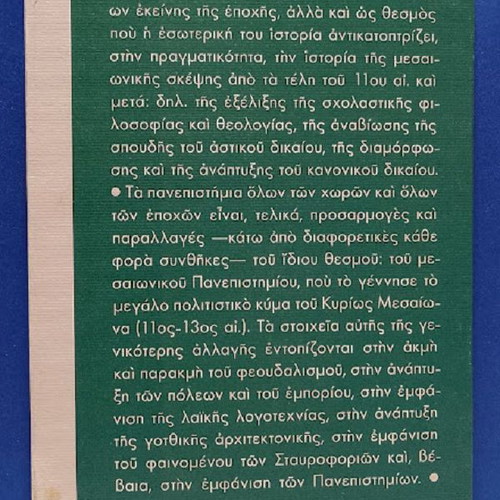 ων ἐκείνης τῆς ἐποχῆς, ἀλλὰ καὶ ὡς θεσμὸς
ποὺ ἡ ἐσωτερική του ἱστορία ἀντικατοπτρίζει,
στὴν πραγματικότητα, τὴν ἱστορία τῆς μεσαι-
ωνικῆς σκέψης ἀπὸ τὰ τέλη τοῦ 11ου αἰ. καὶ
μετά: δηλ. τῆς ἐξέλιξης τῆς σχολαστικῆς φι-
λοσοφίας καὶ θεολογίας, τῆς ἀναβίωσης τῆς
σπουδῆς τοῦ ἀστικοῦ δικαίου, τῆς διαμόρφω-
σης καὶ τῆς ἀνάπτυξης τοῦ κανονικοῦ δικαίου.
● Τὰ πανεπιστήμια ὅλων τῶν χωρῶν καὶ ὅλων
τῶν ἐποχῶν εἶναι, τελικά, προσαρμογὲς καὶ
παραλλαγὲς —κάτω ἀπὸ διαφορετικὲς κάθε
φορὰ συνθῆκες— τοῦ ἴδιου θεσμοῦ: τοῦ με-
σαιωνικοῦ Πανεπιστημίου, ποὺ τὸ γέννησε τὸ
μεγάλο πολιτιστικὸ κύμα τοῦ Κυρίως Μεσαίω-
να (11ος-13ος αἰ.). Τὰ στοιχεῖα αὐτῆς τῆς γε-
νικότερης ἀλλαγῆς ἐντοπίζονται στὴν ἀκμὴ
καὶ παρακμὴ τοῦ φεουδαλισμοῦ, στὴν ἀνάπτυ-
ξη τῶν πόλεων καὶ τοῦ ἐμπορίου, στὴν ἐμφά-
νιση τῆς λαϊκῆς λογοτεχνίας, στὴν ἀνάπτυξη
τῆς γοτθικῆς ἀρχιτεκτονικῆς, στὴν ἐμφάνιση
τοῦ φαινομένου τῶν Σταυροφοριῶν καί, βέ-
βαια, στὴν ἐμφάνιση τῶν Πανεπιστημίων. ●